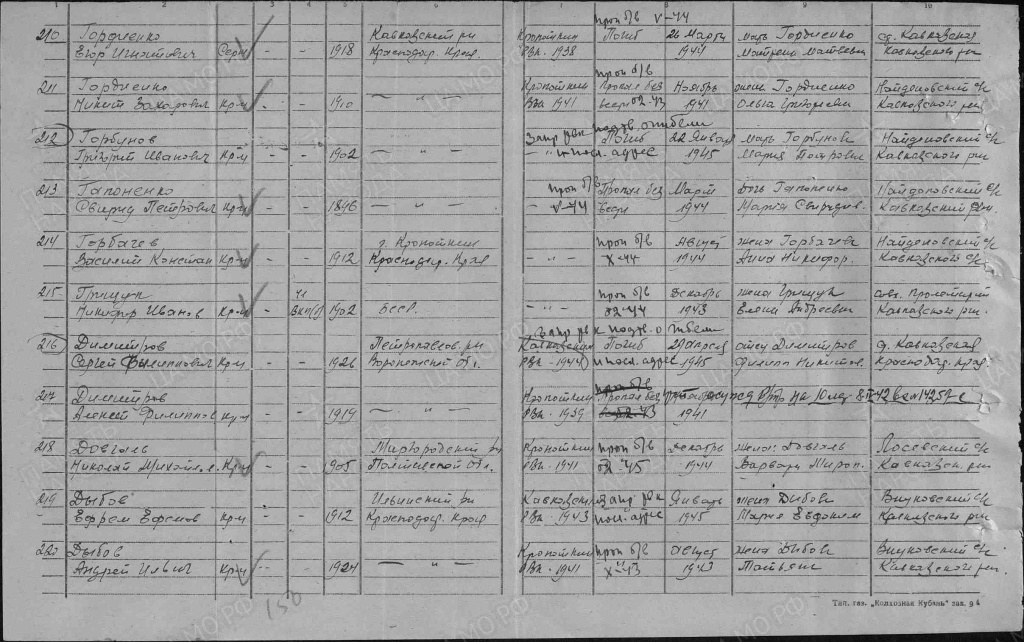 1 2 3 4 5 6 7 8 9 10
проп б/в V-44
210 Гордиенко Кавказский р-н Кропоткин Погиб 26 Марта мать Гордиенко ст. Кавказская
Егор Игнатович Серж - - 1918 Краснодар. Край РВК. 1938 1944 Матрена Матвеевн Кавказского р-н
проп б/в
211 Гордиенко Кропоткин Пропал без Ноябрь жена Гордиенко Найденовский с/с
Никит Захарович Кр-м - - 1910 — " — РВК 1941 вести 02-43 1941 Ольга Григорьевн Кавказского р-н
Запр рвк подтв о гибели
212 Горбунов Погиб 22 Января мать Горбунова Найденовский с/с
Григорий Иванович Кр-м - - 1902 — " — и посл. адрес 1945 Мария Петровна Кавказского р-н
проп б/в
213 Гапоненко Пропал без Март дочь Гапоненко Найденовский с/с
Свирид Петрович Кр-м - - 1896 — " — V-44 вести 1944 Мария Свиридов. Кавказский р-н.
214 Горбачев г. Кропоткин проп б/в Август жена Горбачева Найденовский с/с
Василий Констан Кр-м - - 1912 Краснодар. Край - " - X-44 1944 Анна Никифор. Кавказского р-н
215 Грищук Чл проп б/в Декабрь жена Грищук свх. Пролетарий
Никифор Иванов Кр-м - ВКП(б) 1902 БССР. - " - 02-44 1943 Елена Андреевн Кавказского р-н.
Запр рвк подтв. о гибели
216 Димитров Петропавлов. р-н Кавказский Погиб 29 Апреля отец Димитров ст. Кавказская
Сергей Филиппович Кр-м - - 1926 Воронежской обл. РВК - 1944 и посл. адрес 1945 Филипп Никитов. Краснодар. края.
проп б/в
217 Димитров Кропоткин Пропал без осужд ВТр на 10 лет
Алексей Филиппов Кр-м - - 1919 — " — РВК. 1939 02-43 1941
218 Довгаль Миргородский р-н Кропоткин проп б/в Декабрь жена Довгаль Лосевский с/с
Николай Михайл. Кр-м - - 1905 Полтавской обл. РВК. 1941 02-45 1944 Варвара Мирон. Кавказск. р-н
219 Дыбов Ильинский р-н Кавказский запр рвк Январь жена Дыбова Внуковский с/с
Ефрем Ефимов Кр-м - - 1912 Краснодар. Край РВК. 1943 посл. адрес 1945 Мария Евдоким Кавказского р-н
220 Дыбов Кропоткин проп б/в Август жена Дыбова Внуковский с/с
Андрей Ильич Кр-м - - 1924 — " — РВК. 1941 X-43 1943 Татьяна Кавказского р-н.
150
Тип. газ. „Колхозная Кубань" зак. 94